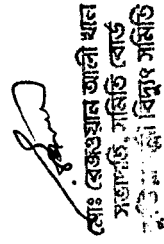 মোঃ রেজওয়ান আলী খান
সভাপতি, সমিতি বোর্ড
পল্লী বিদ্যুৎ সমিতি